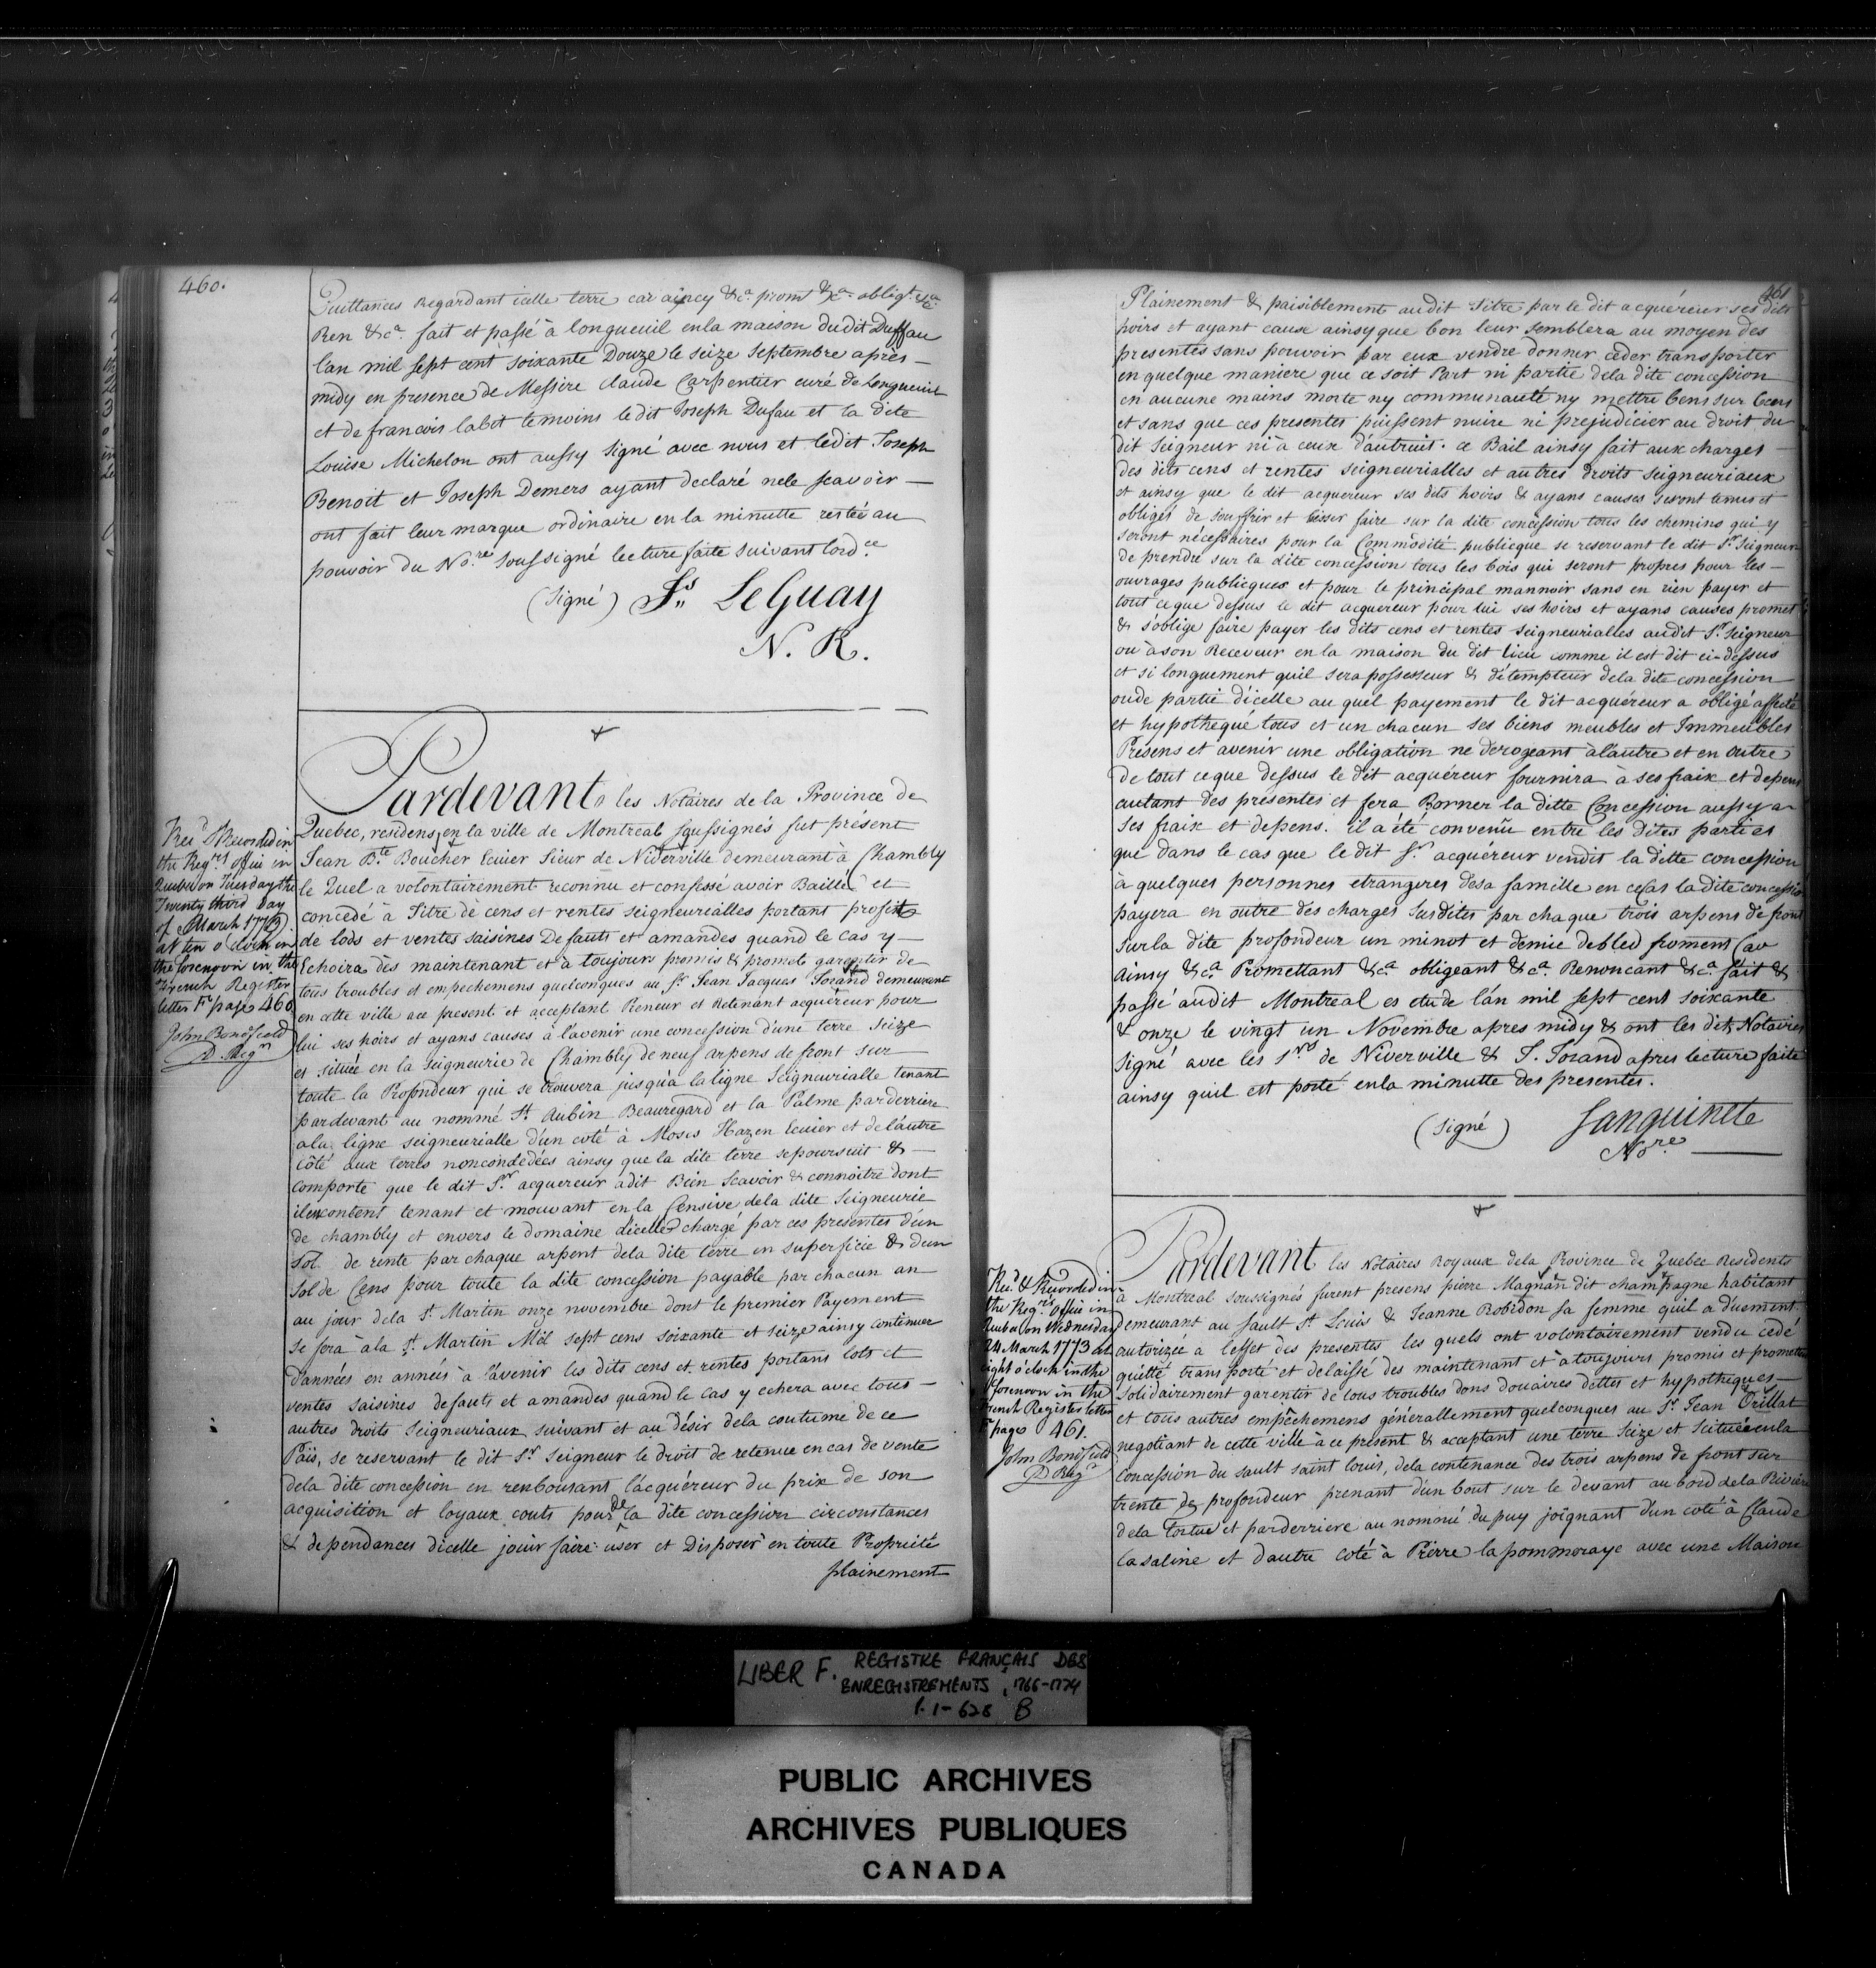 460.
Quittances Regardant icelle terre car aincy &ca. promt &ca. obligt. &ca.
Ren &ca. fait et passé à longueuil enla maison dudit Duffau
lan mil sept cent soixante Douze le seize Septembre après —
midy en presence de Messire claude Carpentier curé de Longueuil
et de francois labet temoins le dit Joseph Dufau et la dite
Louise Michelon ont aussy Signé avec nous et ledit Joseph
Benoit et Joseph Demers ayant declaré nele scavoir —
ont fait leur marque ordinaire en la minutte restée au
pouvoir du No.re soussigné lecture faite suivant lord.ce
(Signé) Fs. LeGuay
N. R.
Pardevant les Notaires de la Province de
Quebec, residens en la ville de Montreal soussignés fut présent
Jean Bte Boucher Ecuier Sieur de Niverville demeurant à Chambly
le Quel a volontairement reconnu et confessé avoir Baillé et
concedé à Titre de cens et rentes seigneurialles portant profits
de lods et ventes saisines Defauts et amandes quand le cas y —
Echoira dès maintenant et à toujours promis & promet garentir de
tous troubles et empechemens quelconques au Sr. Jean Jacques Jorand demeurant
en cette ville ace present et acceptant Preneur et Retenant acquéreur pour
lui ses hoirs et ayans causes à l'avenir une concession d'une terre Seize
et située en la Seigneurie de Chambly de neuf arpens de front sur
toute la Profondeur qui se trouvera jusqu'a la ligne Seigneurialle tenant
pardevant au nommé St Aubin Beauregard et la Palme par derriere
a la ligne seigneurialle d'un coté à Moses Hazen Ecuier et de l'autre
côté aux terres noncondedées ainsy que la dite terre se poursuit & —
comporte que le dit Sr. acquereur a dit Bien Scavoir & connoitre dont
il est content tenant et mouvant en la Censive dela dite Seigneurie
de chambly et envers le domaine d'icelle chargé par ces presentes d'un
Sol de rente par chaque arpent dela dite terre en superficie & d'un
Sol de Cens pour toute la dite concession payable par chacun an
au jour dela St. Martin onze novembre dont le premier Payement
se fera à la St. Martin Mil sept cens soixante et seize ainsy continuer
d'années en années à l'avenir les dits cens et rentes portans lots et
ventes saisines defauts et amandes quand le cas y echera avec tous —
autres droits Seigneuriaux suivant et au désir dela coutume de ce
Païs, se reservant le dit Sr Seigneur le droit de retenue en cas de vente
dela dite concession en remboursant l'acquéreur du prix de son
acquisition et loyaux couts pour de la dite concession circonstances
& dependances dicelle jouir faire user et Disposer en toute Proprieté
plainement
Recd. & Recorded in
the Regrs. office in
Quebec on Tuesday the
Twenty third Day
of March 1773
at ten o'clock in
the forenoon in the
French Register
letter F. page 460
John Bonsfield
D. Regr
461
Plainement & paisiblement audit Titre par le dit acquéreur ses dits
hoirs et ayant cause ainsy que bon leur semblera au moyen des
presentes sans pouvoir par eux vendre donner ceder transporter
en quelque maniere que ce soit Part ni partie dela dite concession
en aucune mains morte ny communauté ny mettre Cens sur Cens
et sans que ces presentes puissent nuire ni prejudicier au droit du
dit Seigneur ni à ceux d'autruit. ce Bail ainsy fait aux charges —
des dits cens et rentes seigneurialles et autres droits seigneuriaux
et ainsy que le dit acquereur ses dits hoirs & ayans causes seront tenus et
obligés de souffrir et laisser faire sur la dite concession tous les chemins qui y
seront nécessaires pour la Commodité publicque se reservant le dit Sr Seigneur
de prendre sur la dite concession tous les bois qui seront propres pour les —
ouvrages publicques et pour le principal mannoir sans en rien payer et
tout ce que dessus le dit acquereur pour lui ses hoirs et ayans causes promet
& s'oblige faire payer les dits cens et rentes seigneurialles audit Sr Seigneur
ou à son Receveur en la maison du dit lieu comme il est dit ci-dessus
et si longuement quil sera possesseur & détempteur dela dite concession
oude partie d'icelle au quel payement le dit acquéreur a obligé affecté
et hypotheque tous et un chacun ses biens meubles et Immeubles
Présens et avenir une obligation ne derogeant à l'autre et en outre
de tout ceque dessus le dit acquéreur fournira à ses fraix et depens
autant des présentes et fera Borner la ditte Concession aussy a
ses fraix et depens. il a été convenu entre les dites parties
que dans le cas que le dit Sr. acquéreur vendit la ditte concession
à quelques personnes etrangeres desa famille en cecas la dite concession
payera en outre des charges susdites par chaque trois arpens de front
sur la dite profondeur un minot et demie debled froment Car
ainsy &ca. Promettant &ca. obligeant &ca. Renoncant &ca. fait &
passé audit Montreal es etude l'an mil sept cent soixante
& onze le vingt un Novembre apres midy & ont les dits Notaires
signé avec les Srs de Niverville & J. Jorand apres lecture faite
ainsy quil est porté enla minutte des presentes.
(signé) Sanguinete
No.re
Pardevant les Notaires Royaux dela Province de Quebec Residents
à Montreal soussignés furent presens pierre Magnan dit champagne habitant
demeurant au sault St Louis & Jeanne Robidon sa femme quil a duement
autorizée a leffet des presentes les quels ont volontairement vendu cedé
quitté transporté et delaissé des maintenant et à toujours promis et promettent
solidairement garentir de tous troubles dons douaires dettes et hypotheques —
et tous autres empêchemens générallement quelconques au Sr Jean Orillat
negotiant de cette ville à ce present & acceptant une terre Seize et scituée enla
Concession du sault saint louis, dela contenance des trois arpens de front sur
trente de profondeur prenant d'un bout sur le devant au bord dela Riviere
dela Tortue et par derriere au nommé dupuy joignant d'un coté à Claude
lasaline et dautre coté à Pierre lapommoraye avec une Maison
Recd. & Recorded in
the Regrs. office in
Quebec on Wednesday
24 March 1773 at
eight o'clock in the
forenoon in the
French Register letter
F. page 461.
John Bonsfield
D Regr
LIBER F. REGISTRE FRANÇAIS DES
ENREGISTREMENTS, 1766-1774
P. 1-628 B
PUBLIC ARCHIVES
ARCHIVES PUBLIQUES
CANADA